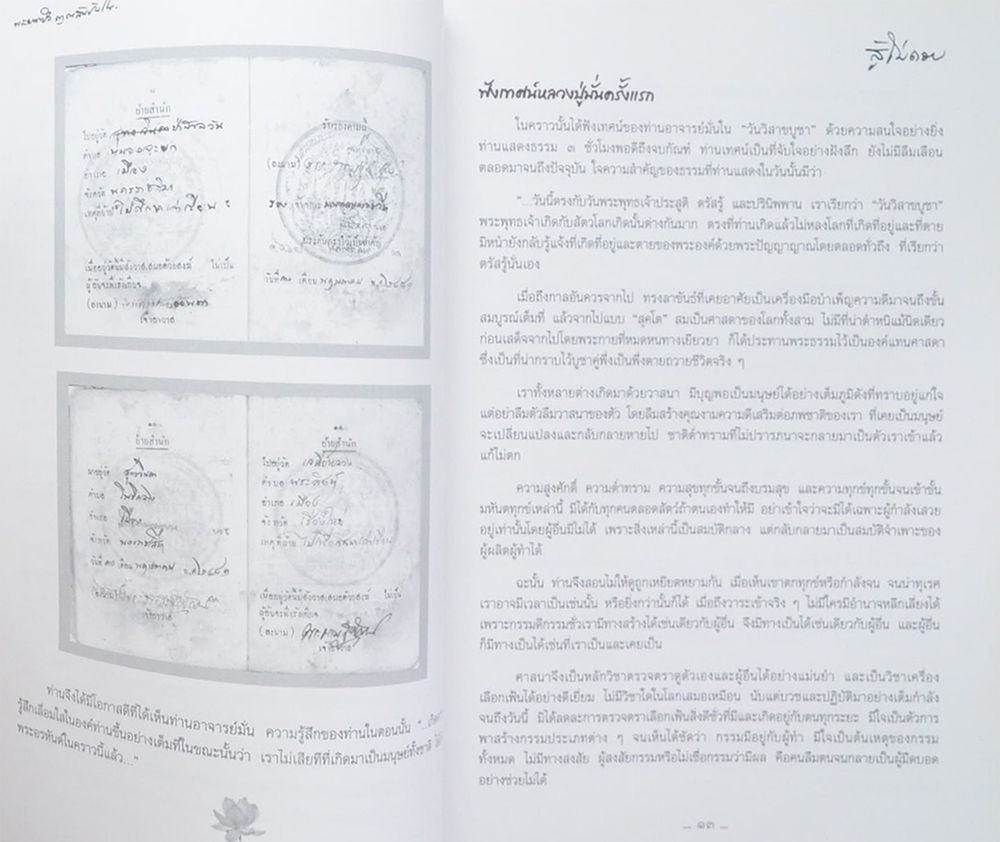 ๘
ย้ายสำนัก
ไปอยู่วัด
ตำบล
อำเภอ เมือง
จังหวัด นครราชสีมา
เหตุที่ย้าย
เมื่ออยู่วัดนี้มีสังวาสเสมอด้วยสงฆ์ ไม่เป็น
ผู้อันจะพึงรังเกียจ
(ลงนาม)
เจ้าอาวาส
รับรองตามนี้
(ลงนาม)
วันที่ ๓๐ เดือน พฤษภาคม
๑๐
ย้ายสำนัก
มาอยู่วัด
ตำบล
อำเภอ เมือง
จังหวัด
วันที่ ๓๐ เดือน พฤษภาคม
เจ้าอาวาส
๑๑
ย้ายสำนัก
ไปอยู่วัด เจดีย์หลวง
ตำบล พระสิงห์
อำเภอ เมือง
จังหวัด เชียงใหม่
เหตุที่ย้าย
เมื่ออยู่วัดนี้มีสังวาสเสมอด้วยสงฆ์ ไม่เป็น
ผู้อันจะพึงรังเกียจ
(ลงนาม)
เจ้าอาวาส
ท่านจึงได้มีโอกาสดีที่ได้เห็นท่านอาจารย์มั่น ความรู้สึกของท่านในตอนนั้น
รู้สึกเลื่อมใสในองค์ท่านขึ้นอย่างเต็มที่ในขณะนั้นว่า เราไม่เสียทีที่เกิดมาเป็นมนุษย์ทั้งชาติ
พระอรหันต์ในคราวนี้แล้ว..."
ฟังเทศน์หลวงปู่มั่นครั้งแรก
ในคราวนั้นได้ฟังเทศน์ของท่านอาจารย์มั่นใน "วันวิสาขบูชา" ด้วยความสนใจอย่างยิ่ง
ท่านแสดงธรรม ๓ ชั่วโมงพอดีถึงจบกัณฑ์ ท่านเทศน์เป็นที่จับใจอย่างฝังลึก ยังไม่มีลืมเลือน
ตลอดมาจนถึงปัจจุบัน ใจความสำคัญของธรรมที่ท่านแสดงในวันนั้นมีว่า
"...วันนี้ตรงกับวันพระพุทธเจ้าประสูติ ตรัสรู้ และปรินิพพาน เราเรียกว่า "วันวิสาขบูชา"
พระพุทธเจ้าเกิดกับสัตว์โลกเกิดนั้นต่างกันมาก ตรงที่ท่านเกิดแล้วไม่หลงโลกที่เกิดที่อยู่และที่ตาย
มิหนำยังกลับรู้แจ้งที่เกิดที่อยู่และตายของพระองค์ด้วยพระปัญญาญาณโดยตลอดทั่วถึง ที่เรียกว่า
ตรัสรู้นั่นเอง
เมื่อถึงกาลอันควรจากไป ทรงลาขันธ์ที่เคยอาศัยเป็นเครื่องมือบำเพ็ญความดีมาจนถึงขั้น
สมบูรณ์เต็มที่ แล้วจากไปแบบ "สุคโต" สมเป็นศาสดาของโลกทั้งสาม ไม่มีที่น่าตำหนิแม้นิดเดียว
ก่อนเสด็จจากไปโดยพระกายที่หมดหนทางเยียวยา ก็ได้ประทานพระธรรมไว้เป็นองค์แทนศาสดา
ซึ่งเป็นที่น่ากราบไว้บูชาคู่พึ่งเป็นพึ่งตายถวายชีวิตจริง ๆ
เราทั้งหลายต่างเกิดมาด้วยวาสนา มีบุญพอเป็นมนุษย์ได้อย่างเต็มภูมิดังที่ทราบอยู่แก่ใจ
แต่อย่าลืมตัวลืมวาสนาของตัว โดยลืมสร้างคุณงามความดีเสริมต่อภพชาติของเรา ที่เคยเป็นมนุษย์
จะเปลี่ยนแปลงและกลับกลายหายไป ชาติต่ำทรามที่ไม่ปรารถนาจะกลายมาเป็นตัวเราเข้าแล้ว
แก้ไม่ตก
ความสูงศักดิ์ ความต่ำทราม ความสุขทุกขั้นจนถึงบรมสุข และความทุกข์ทุกขั้นจนเข้าขั้น
มหันตทุกข์เหล่านี้ มีได้กับทุกคนตลอดสัตว์ถ้าตนเองทำให้มี อย่าเข้าใจว่าจะมีได้เฉพาะผู้กำลังเสวย
อยู่เท่านั้นโดยผู้อื่นมีไม่ได้ เพราะสิ่งเหล่านี้เป็นสมบัติกลาง แต่กลับกลายมาเป็นสมบัติจำเพาะของ
ผู้ผลิตผู้ทำได้
ฉะนั้น ท่านจึงสอนไม่ให้ดูถูกเหยียดหยามกัน เมื่อเห็นเขาตกทุกข์หรือกำลังจน จนน่าทุเรศ
เราอาจมีเวลาเป็นเช่นนั้น หรือยิ่งกว่านั้นก็ได้ เมื่อถึงวาระเข้าจริง ๆ ไม่มีใครมีอำนาจหลีกเลี่ยงได้
เพราะกรรมดีกรรมชั่วเรามีทางสร้างได้เช่นเดียวกับผู้อื่น จึงมีทางเป็นได้เช่นเดียวกับผู้อื่น และผู้อื่น
ก็มีทางเป็นได้เช่นที่เราเป็นและเคยเป็น
ศาสนาจึงเป็นหลักวิชาตรวจตราดูตัวเองและผู้อื่นได้อย่างแม่นยำ และเป็นวิชาเครื่อง
เลือกเฟ้นได้อย่างดีเยี่ยม ไม่มีวิชาใดในโลกเสมอเหมือน นับแต่บวชและปฏิบัติมาอย่างเต็มกำลัง
จนถึงวันนี้ มิได้ลดละการตรวจตราเลือกเฟ้นสิ่งดีชั่วที่มีและเกิดอยู่กับตนทุกระยะ มีใจเป็นตัวการ
พาสร้างกรรมประเภทต่าง ๆ จนเห็นได้ชัดว่า กรรมมีอยู่กับผู้ทำ มีใจเป็นต้นเหตุของกรรม
ทั้งหมด ไม่มีทางสงสัย ผู้สงสัยกรรมหรือไม่เชื่อกรรมว่ามีผล คือคนลืมตนจนกลายเป็นผู้มืดบอด
อย่างช่วยไม่ได้
- ๑๓ -